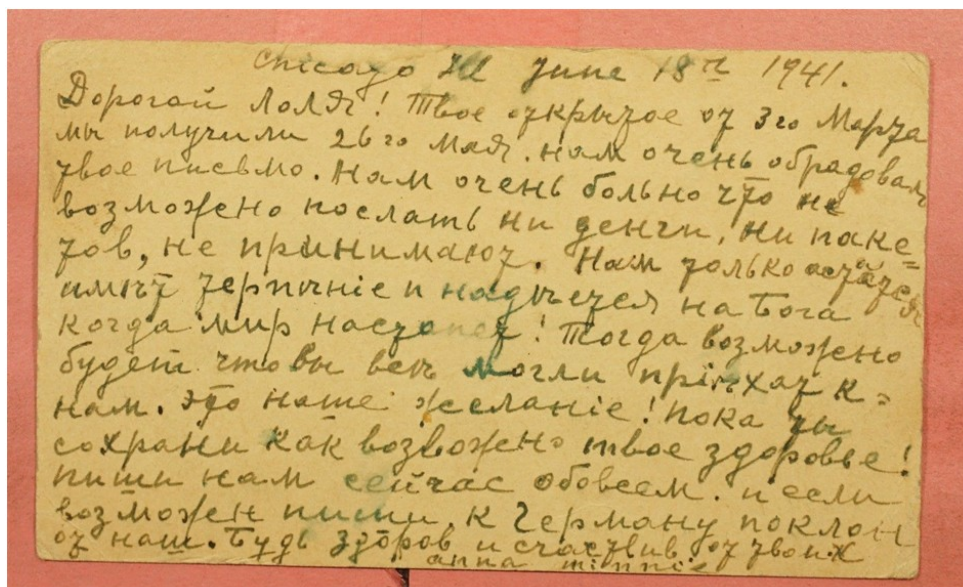 Chicago Ill June 18th 1941.
Дорогой Лоля! Твое открытое от 3го Марта
мы получили 26го мая. нам очень обрадовал
твое письмо. Нам очень больно что не
возможено послать ни денги, ни паке=
тов, не принимают. Нам только
имѣт терпѣніе и надѣется на Бога
когда мир настопет! Тогда возможено
будет что вы всѣ могли пріѣхат к=
нам. Это наше желаніе! пока ты
сохрани как возвожено твое здоровье!
пиши нам сейчас обовсем. и если
возможен пиши к Герману поклон
от наш. Будь здоров и счастлив от твоих
anna minnie